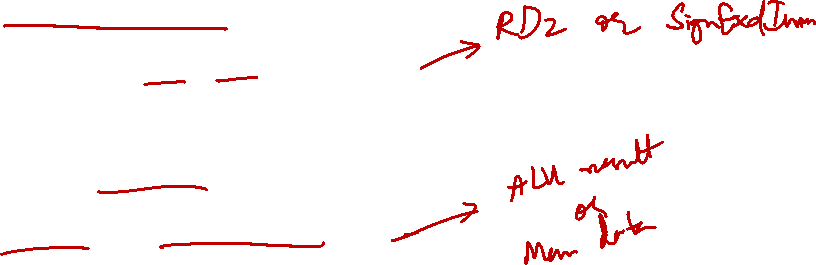 → RD2 or SignExtdImm
→ ALU result
or
Mem Data